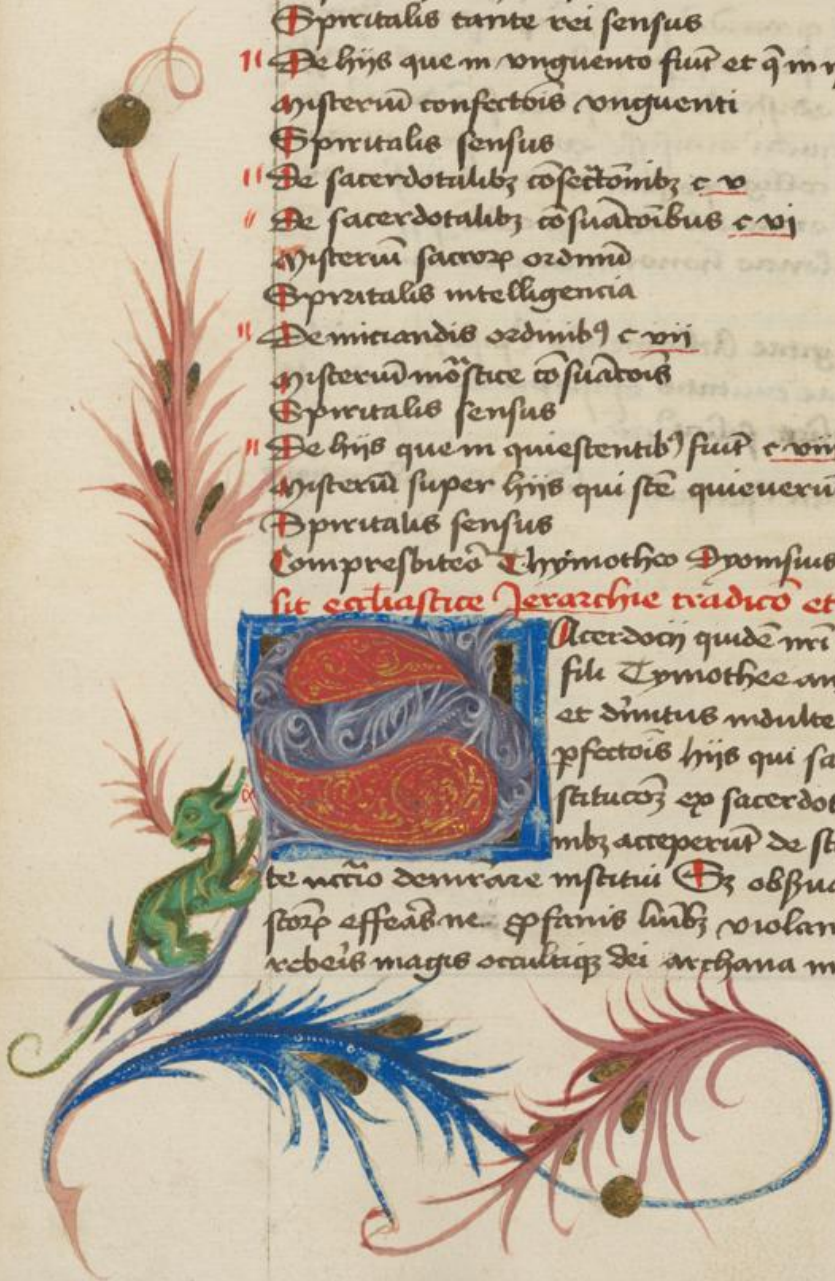 Spiritalis tante rei sensus
De hijs que in vnguento fiūt et q̄ in
Misteriū confectōis vnguenti
Spiritalis sensus
De sacerdotalibꝫ cōsectōnibꝫ c v
De sacerdotalibꝫ cōsuatōibus c vi
Misteriū sacroꝝ ordinū
Spiritalis intelligencia
De iniciandis ordinibꝰ c vii
Misteriū mōstice cōsuatōis
Spiritalis sensus
De hijs que in quiescentibꝰ fiūt c viii
Misteriū super hijs qui scē quieuerūt
Spiritalis sensus
Compresbiteo Thymotheo Dyonisius
sit eccliastice Jerarchie tradicō et
SAcerdocij quidē nr̄i
fili Tymothee
et diuītus indulte
ꝑfectōis hijs qui sa
stitucōꝫ ex sacerdot
nibꝫ acceperūt de
institui Sꝫ obsꝫua
scōꝝ ne ꝓfanis violan
magis occultiqꝫ dei archana